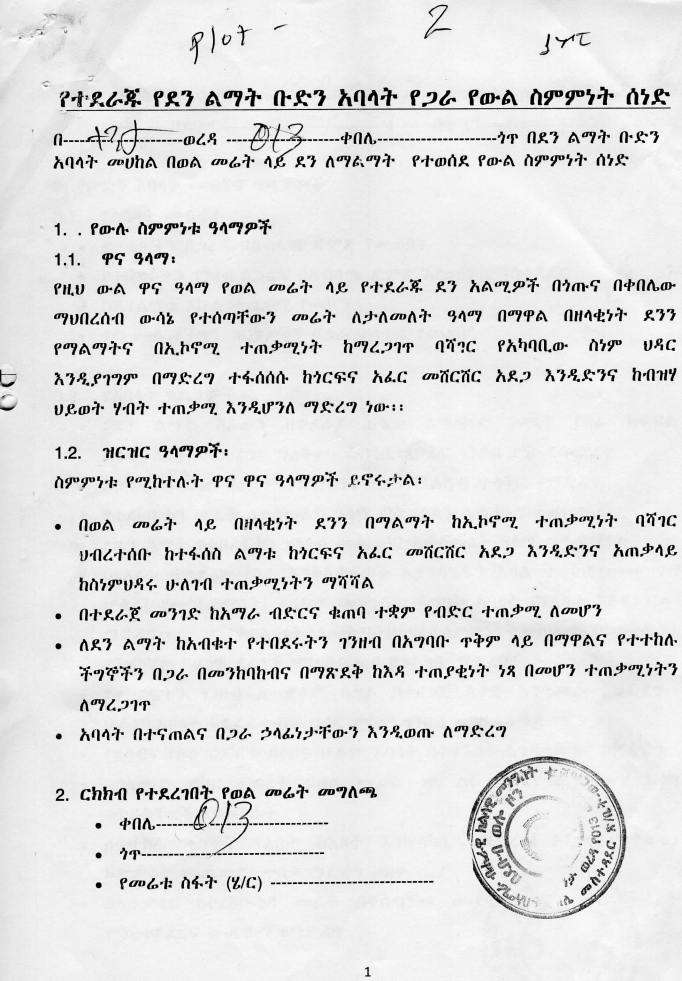 plot - 2
የተደራጁ የደን ልማት ቡድን አባላት የጋራ የውል ስምምነት ሰነድ
በ-------------------ወረዳ -------013-------ቀበሌ-------------------ጎጥ በደን ልማት ቡድን
አባላት መሀከል በወል መሬት ላይ ደን ለማልማት የተወሰደ የውል ስምምነት ሰነድ
1. . የውሉ ስምምነቱ ዓላማዎች
1.1. ዋና ዓላማ፡
የዚህ ውል ዋና ዓላማ የወል መሬት ላይ የተደራጁ ደን አልሚዎች በጎጡና በቀበሌው
ማህበረሰብ ውሳኔ የተሰጣቸውን መሬት ለታለመለት ዓላማ በማዋል በዘላቂነት ደንን
የማልማትና በኢኮኖሚ ተጠቃሚነት ከማረጋገጥ ባሻገር የአካባቢው ስነም ህዳር
እንዲያገግም በማድረግ ተፋሰሰሱ ከጎርፍና አፈር መሸርሸር አደጋ እንዲድንና ከብዝሃ
ህይወት ሃብት ተጠቃሚ እንዲሆንለ ማድረግ ነው፡፡
1.2. ዝርዝር ዓላማዎች፡
ስምምነቱ የሚከተሉት ዋና ዋና ዓላማዎች ይኖሩታል፡
• በወል መሬት ላይ በዘላቂነት ደንን በማልማት ከኢኮኖሚ ተጠቃሚነት ባሻገር
ህብረተሰቡ ከተፋሰስ ልማቱ ከጎርፍና አፈር መሸርሸር አደጋ እንዲድንና አጠቃላይ
ከስነምህዳሩ ሁለገብ ተጠቃሚነትን ማሻሻል
• በተደራጀ መንገድ ከአማራ ብድርና ቁጠባ ተቋም የብድር ተጠቃሚ ለመሆን
• ለደን ልማት ከአብቁተ የተበደሩትን ገንዘብ በአግባቡ ጥቅም ላይ በማዋልና የተተከሉ
ችግኞችን በጋራ በመንከባከብና በማጽደቅ ከእዳ ተጠያቂነት ነጻ በመሆን ተጠቃሚነትን
ለማረጋገጥ
• አባላት በተናጠልና በጋራ ኃላፊነታቸውን እንዲወጡ ለማድረግ
2. ርክክብ የተደረገበት የወል መሬት መግለጫ
• ቀበሌ-------013--------------------
• ጎጥ-----------------------------
• የመሬቱ ስፋት (ሄ/ር) --------------------------
1